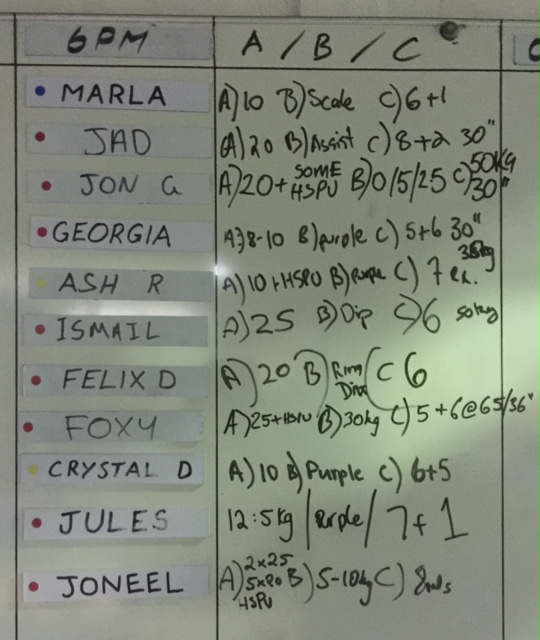 6PM A / B / C
MARLA A) 10 B) Scale C) 6+1
JAD A) 20 B) Assist C) 8+2 30"
JON G A) 20+ SOME HSPU B) 0/5/25 C) 50KG 30"
GEORGIA A) 8-10 B) purple C) 5+6 30"
ASH R A) 10+HSPU B) Purple C) 7 35kg
ISMAIL A) 25 B) Dip C) 6 50kg
FELIX D A) 20 B) Ring C) 6
FOXY A) 25+HSPU B) 30kg C) 5+6@65/36"
CRYSTAL D A) 10 B) Purple C) 6+5
JULES 12:5kg / Purple / 7+1
JONEEL A) 2x25 5x20 HSPU B) 5-10kg C) 8